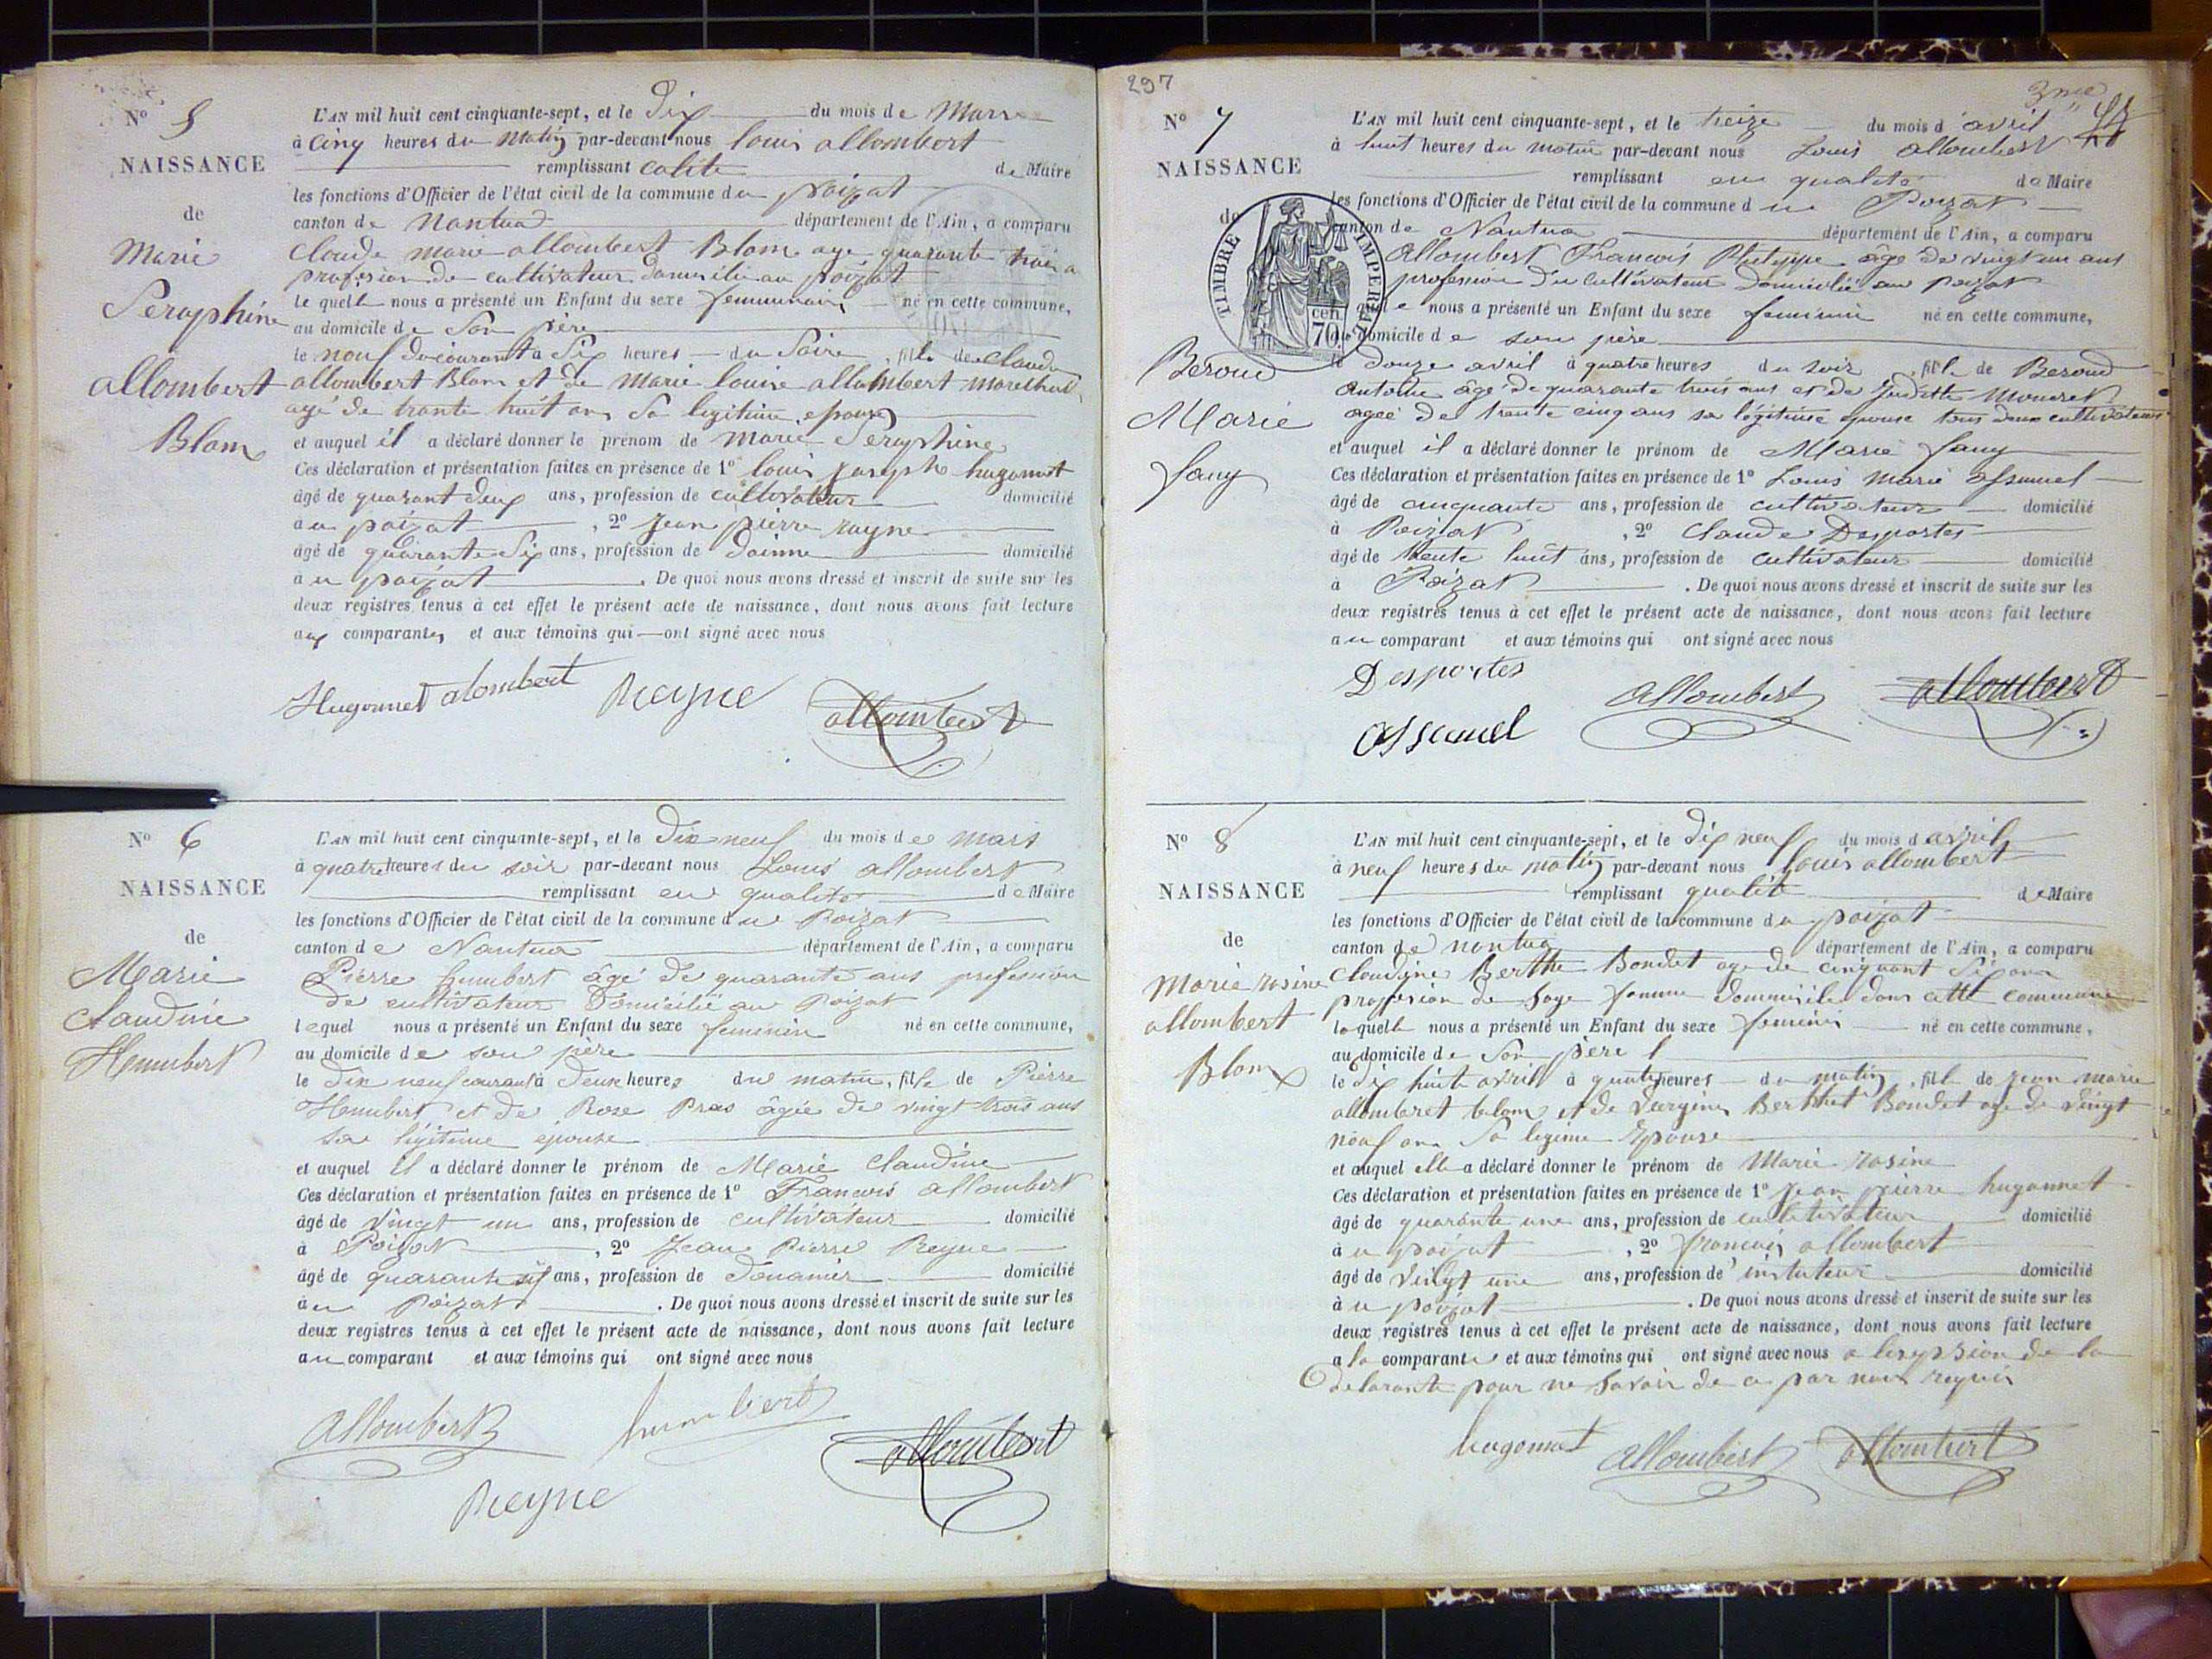 N° 5
NAISSANCE
de
Marie
Seraphine
allombert
Blom
L'AN mil huit cent cinquante-sept, et le Dix du mois de Mars
à Cinq heures du Matin par-devant nous louis allombert
remplissant calite de Maire
les fonctions d'Officier de l'état civil de la commune du poizat
canton de Nantua département de l'Ain, a comparu
Claude marie allombert Blom age quarante trois a
profesion de cultivateur domicilie au poizat
le quelle nous a présenté un Enfant du sexe né en cette commune,
au domicile de Son père
le neuf ducourant à Six heures du Soire, fille de Claude
allombert Blom et de Marie louise allombert
agé de trante huit ans Sa legitime epouse
et auquel il a déclaré donner le prénom de Marie Seraphine
Ces déclaration et présentation faites en présence de 1° louis joseph hugonnet
âgé de quarant deux ans, profession de cultivateur domicilié
au poizat, 2° Jean pierre rayne
âgé de quarante Six ans, profession de domicilié
au poizat. De quoi nous avons dressé et inscrit de suite sur les
deux registres tenus à cet effet le présent acte de naissance, dont nous avons fait lecture
aux comparants et aux témoins qui ont signé avec nous
Hugonnet alombert Reyne allombert
N° 6
NAISSANCE
de
Marie
Claudine
Humbert
L'AN mil huit cent cinquante-sept, et le Dix neuf du mois de Mars
à quatre heures du soir par-devant nous Louis allombert
remplissant en qualité de Maire
les fonctions d'Officier de l'état civil de la commune du Poizat
canton de Nantua département de l'Ain, a comparu
Pierre humbert âgé de quarante ans profession
de cultivateur Domicilié au Poizat
lequel nous a présenté un Enfant du sexe feminin né en cette commune,
au domicile de son père
le Dix neuf courant à Deux heures du matin, fille de Pierre
Humbert et de Rose Pras âgée de vingt trois ans
sa légitime épouse
et auquel il a déclaré donner le prénom de Marie Claudine
Ces déclaration et présentation faites en présence de 1° Francois allombert
âgé de Vingt un ans, profession de cultivateur domicilié
à Poizat, 2° Jean Pierre Reyne
âgé de quarante six ans, profession de Douanier domicilié
au Poizat. De quoi nous avons dressé et inscrit de suite sur les
deux registres tenus à cet effet le présent acte de naissance, dont nous avons fait lecture
au comparant et aux témoins qui ont signé avec nous
Allombert humbert allombert
Reyne
297
3me
N° 7
NAISSANCE
de
TIMBRE IMPERIAL
cen. 70
Beroud
Marie
fany
L'AN mil huit cent cinquante-sept, et le treize du mois d'avril
à huit heures du matin par-devant nous Louis allombert
remplissant en qualité de Maire
les fonctions d'Officier de l'état civil de la commune du Poizat
canton de Nantua département de l'Ain, a comparu
Allombert Francois Philippe âgé de vingt un ans
profession de cultivateur Domicilié au Poizat
quel nous a présenté un Enfant du sexe feminin né en cette commune,
au domicile de son père
le douze avril à quatre heures du soir, fille de Beroud
antoine âgé de quarante trois ans et de Juditte Moncret
agée de trente cinq ans sa légitime épouse tous deux cultivateurs
et auquel il a déclaré donner le prénom de Marie fany
Ces déclaration et présentation faites en présence de 1° Louis Marie assumel
âgé de cinquante ans, profession de cultivateur domicilié
à Poizat, 2° Claude Desportes
âgé de trente huit ans, profession de cultivateur domicilié
à Poizat. De quoi nous avons dressé et inscrit de suite sur les
deux registres tenus à cet effet le présent acte de naissance, dont nous avons fait lecture
au comparant et aux témoins qui ont signé avec nous
Desportes Allombert allombert
assumel
N° 8
NAISSANCE
de
Marie rosine
allombert
Blom
L'AN mil huit cent cinquante-sept, et le dix neuf du mois d avril
à neuf heures du matin par-devant nous louis allombert
remplissant qualité de Maire
les fonctions d'Officier de l'état civil de la commune du poizat
canton de nantua département de l'Ain, a comparu
Claudine Berthe Bondet age de cinquant Six ans
profesion de Sage famme dommicile dans cette commune
laquelle nous a présenté un Enfant du sexe feminin né en cette commune,
au domicile de Son père
le dix huit avril à quatre heures du matin, fille de jean marie
allombret blom et de Vergine Berthet Bondet age de Vingt
neuf ans Sa legime Epouse
et auquel elle a déclaré donner le prénom de Marie rosine
Ces déclaration et présentation faites en présence de 1° jean pierre hugonnet
âgé de quarante une ans, profession de cultivateur domicilié
au poizat, 2° francois allombert
âgé de Vingt une ans, profession de instuteur domicilié
au poizat. De quoi nous avons dressé et inscrit de suite sur les
deux registres tenus à cet effet le présent acte de naissance, dont nous avons fait lecture
a la comparante et aux témoins qui ont signé avec nous a de la
delarante pour ne Savoir de ce par nous requis
hugonnet Allombert allombert